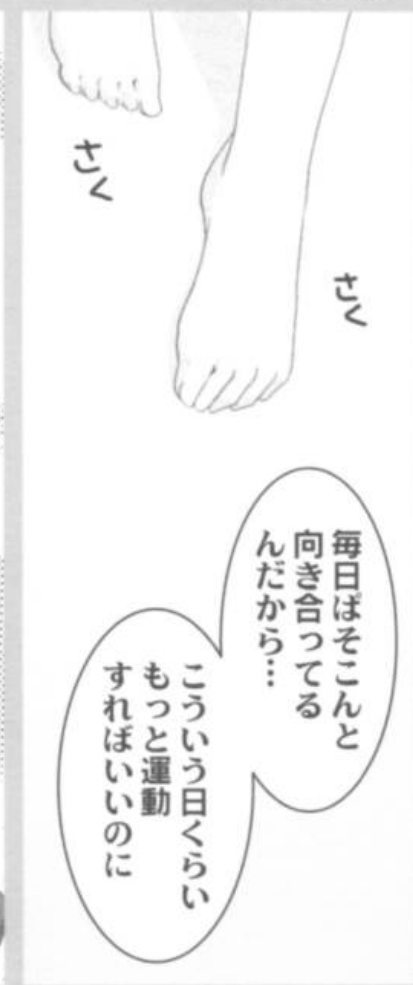 さく
さく
毎日ぱそこんと
向き合ってる
んだから…
こういう日くらい
もっと運動
すればいいのに